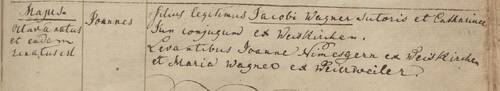 Majus
octava natus
et eadem
renatus est
Joannes
filius legitimus Jacobi Wagner sutoris et Catharinæ
Jun conjugum ex Weiskirchen.
Levantibus Joanne Nimesgern ex Weiskirchen
et Maria Wagner ex Weierweiler.